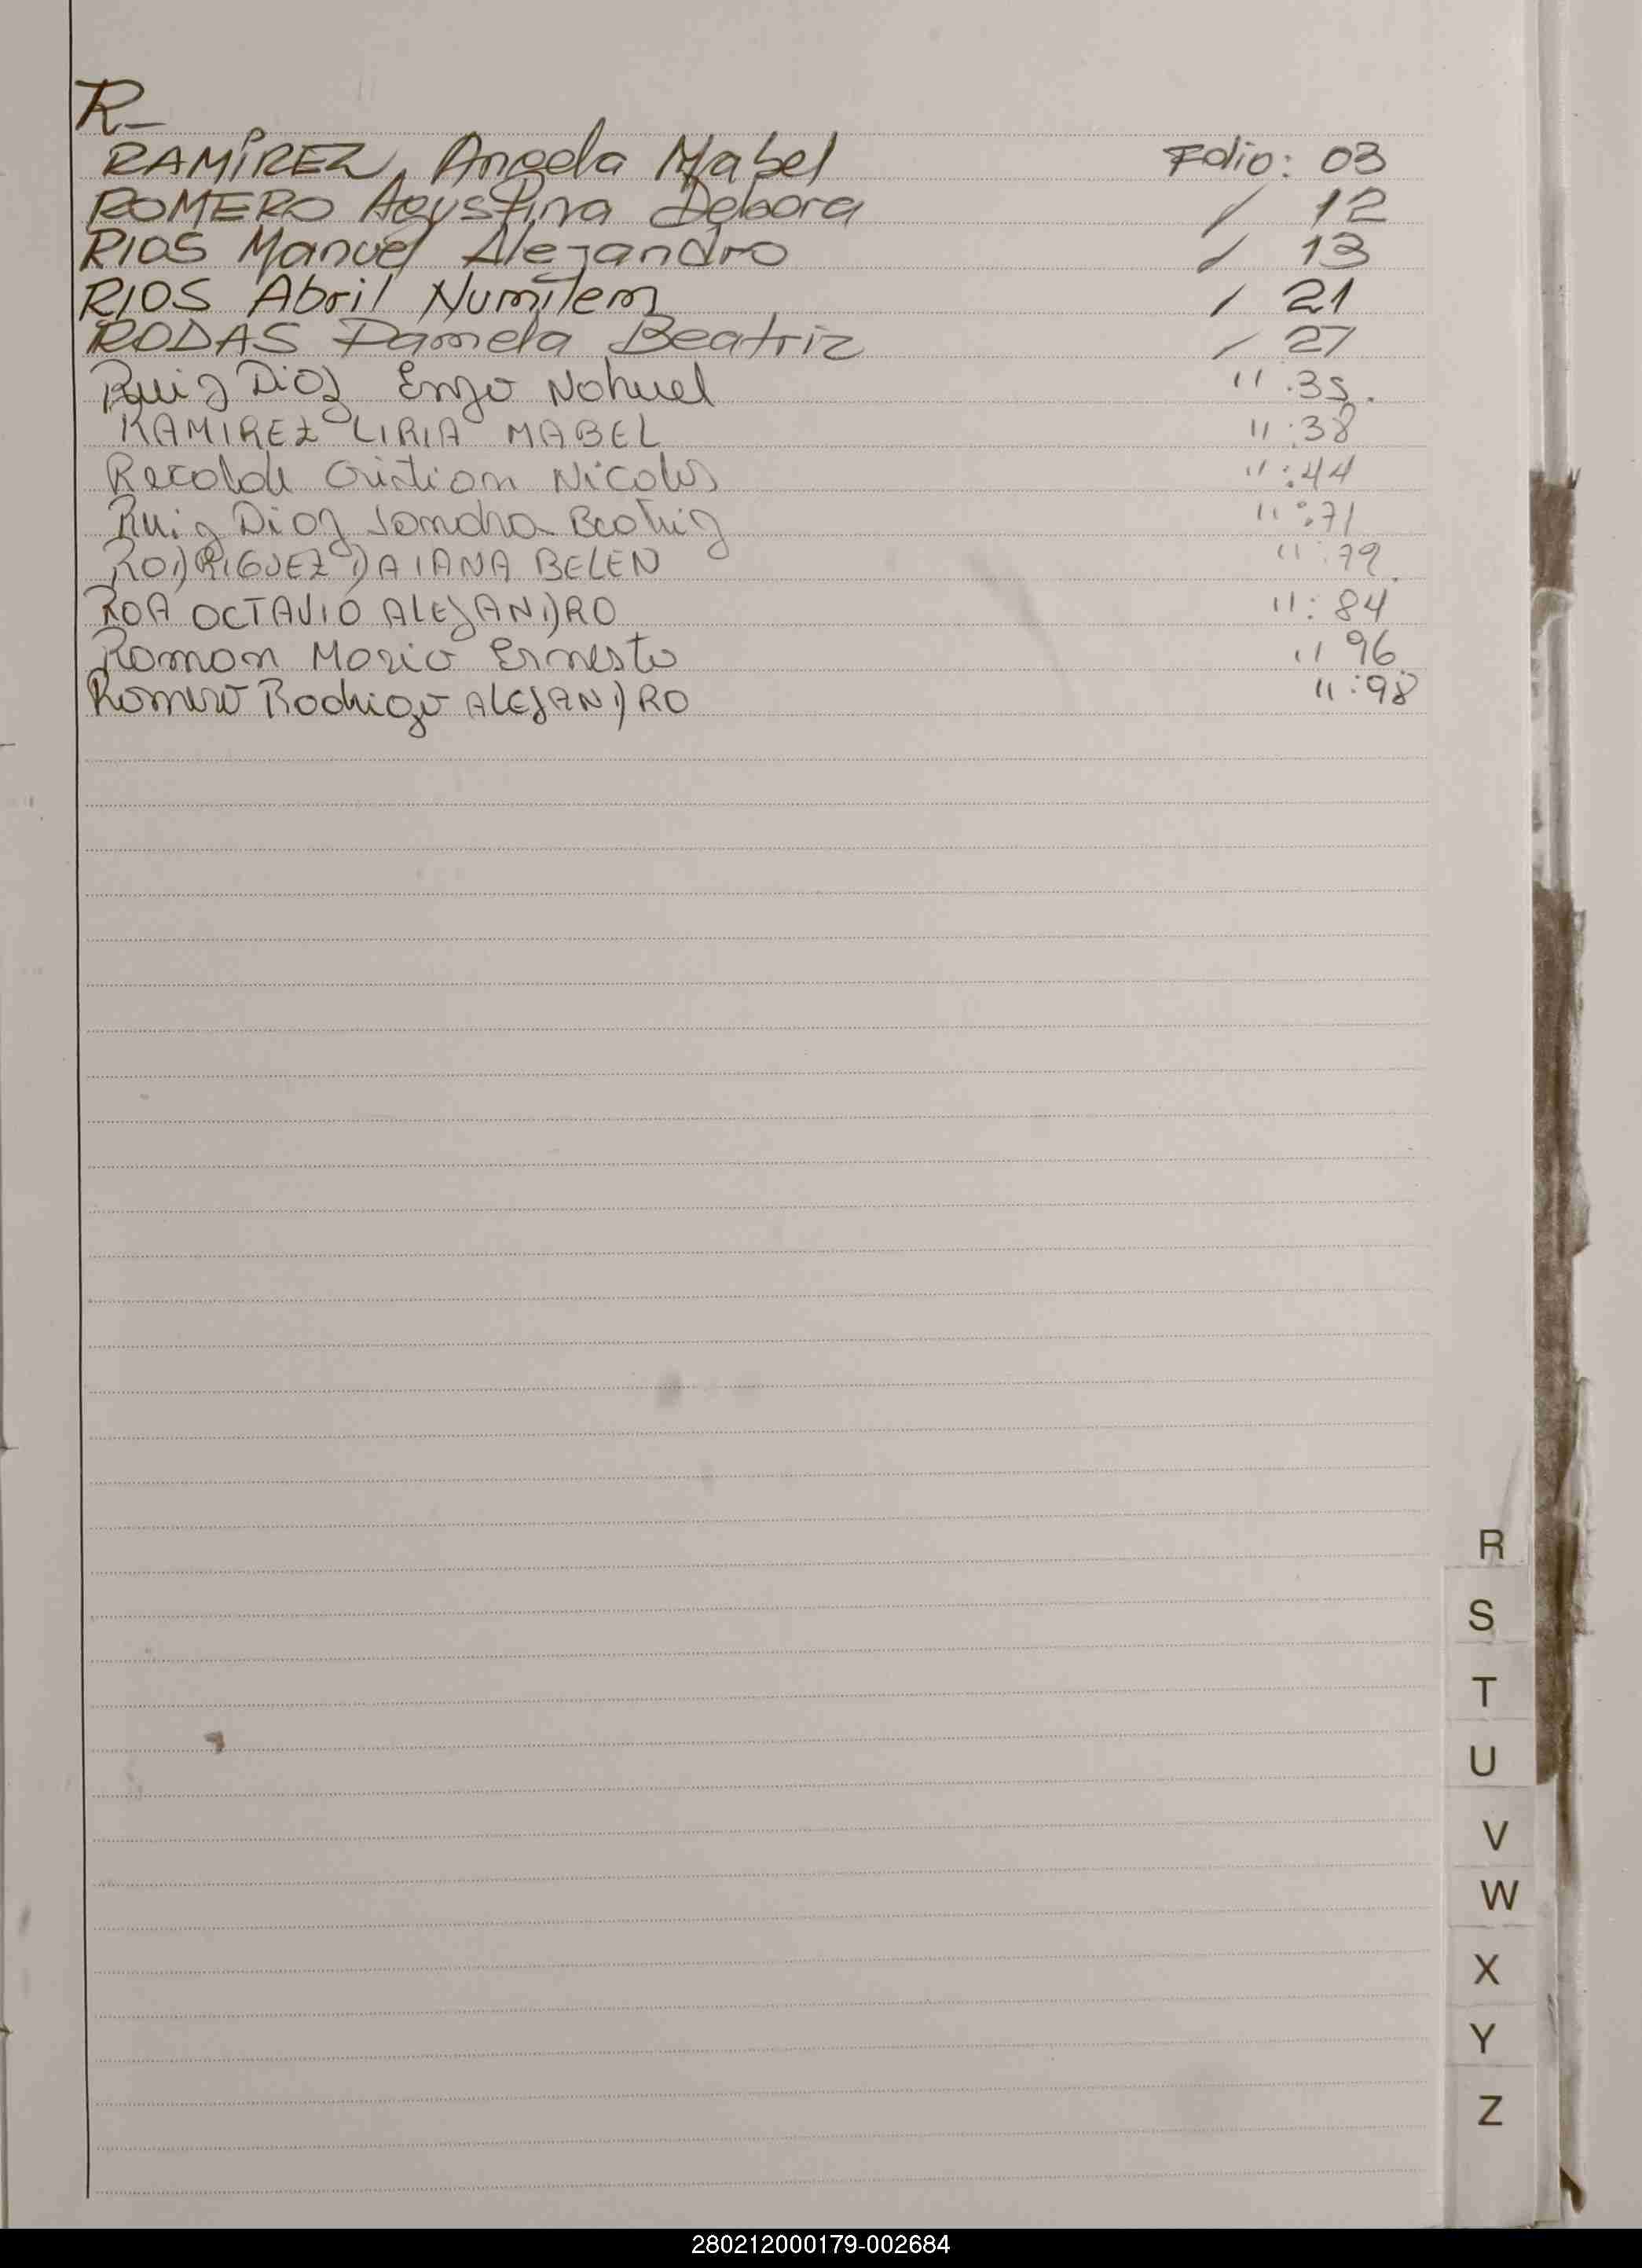 R_
RAMÍREZ, Angela Mabel Folio: 03
ROMERO Agustina Debora / 12
RIOS Manuel Alejandro / 13
RIOS Abril Numilem / 21
RODAS Pamela Beatriz / 27
Ruiz Diaz Enzo Nahuel " :35.
RAMIREZ LIRIA MABEL " :38
Recalde Cristian Nicolas " :44
Ruiz Diaz Sandra Beatriz " :71
RODRIGUEZ DAIANA BELEN " :79.
ROA OCTAVIO ALEJANDRO " : 84
Roman Mario Ernesto " 96.
Romero Rodrigo ALEJANDRO " :98
R
S
T
U
V
W
X
Y
Z
280212000179-002684